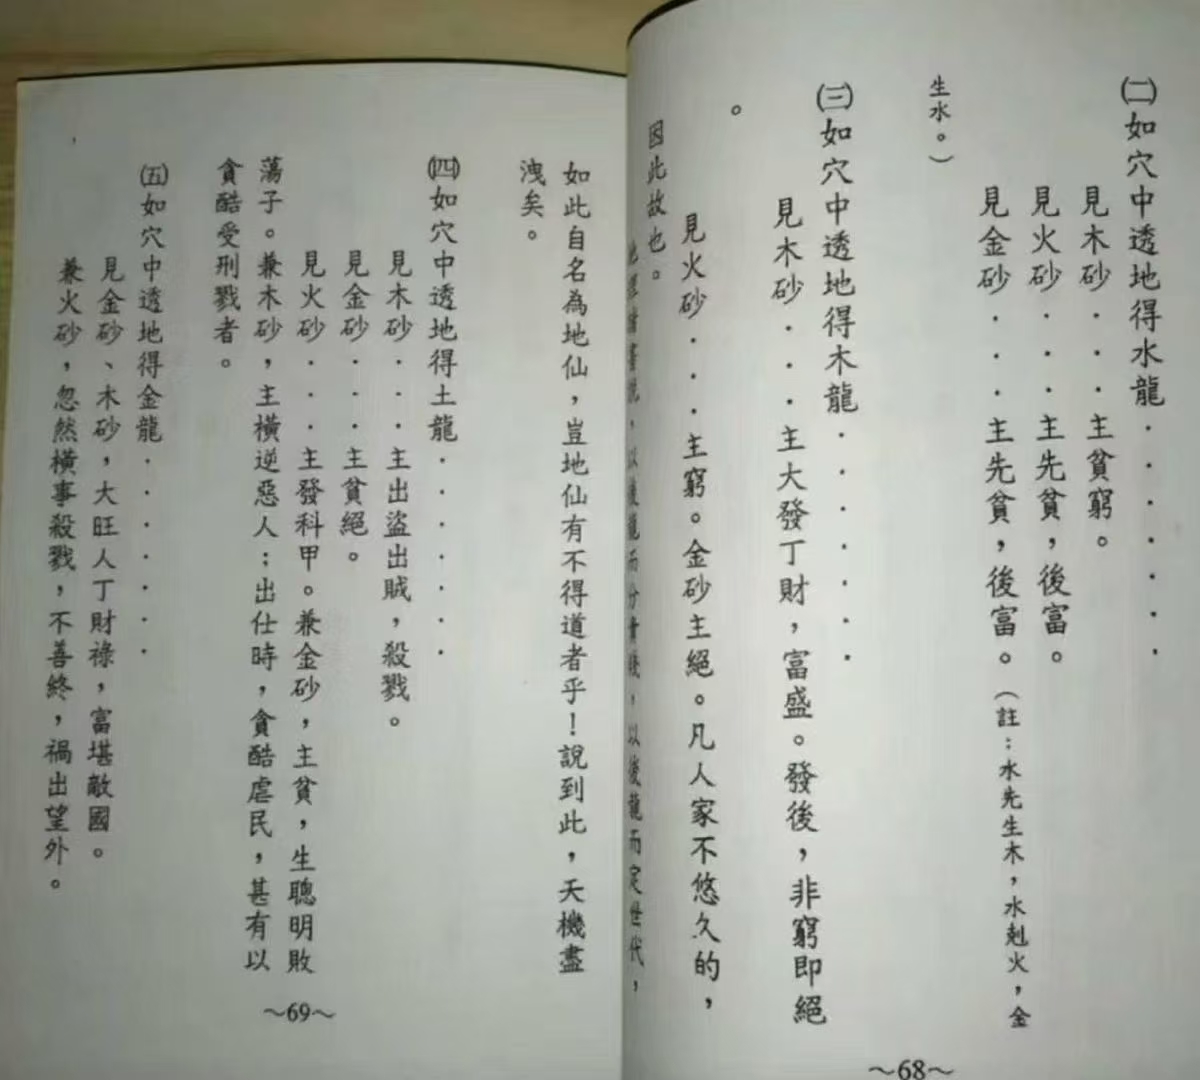 ㈡如穴中透地得水龍．．．．．．
見木砂．．．主貧窮。
見火砂．．．主先貧，後富。
見金砂．．．主先貧，後富。（註：水先生木，水剋火，金
生水。）
㈢如穴中透地得木龍．．．．．．
見木砂．．．主大發丁財，富盛。發後，非窮即絕
。
見火砂．．．主窮。金砂主絕。凡人家不悠久的，
因此故也。
地理諸書說，以後龍而分貴賤，以後龍而定世代，
如此自名為地仙，豈地仙有不得道者乎！說到此，天機盡
洩矣。
㈣如穴中透地得土龍．．．．．．
見木砂．．．主出盜出賊，殺戮。
見金砂．．．主貧絕。
見火砂．．．主發科甲。兼金砂，主貧，生聰明敗
蕩子。兼木砂，主橫逆惡人；出仕時，貪酷虐民，甚有以
貪酷受刑戮者。
㈤如穴中透地得金龍．．．．．．
見金砂、木砂，大旺人丁財祿，富堪敵國。
兼火砂，忽然橫事殺戮，不善終，禍出望外。
～68～
～69～